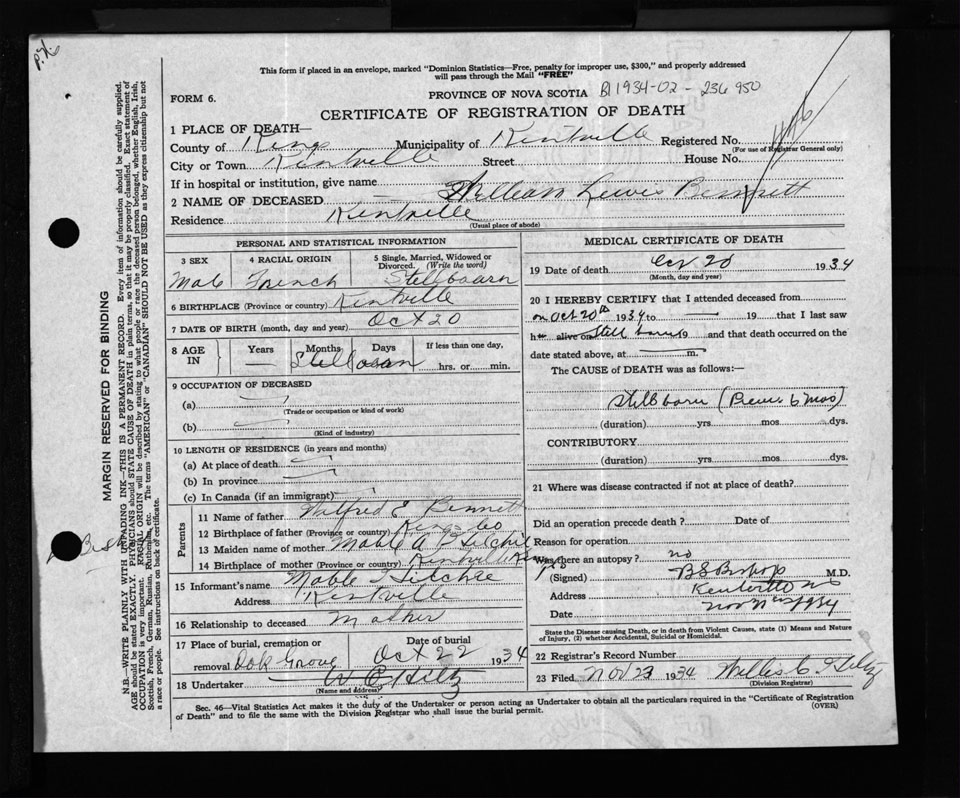 P.N.
This form if placed in an envelope, marked "Dominion Statistics—Free, penalty for improper use, $300," and properly addressed
will pass through the Mail "FREE"
FORM 6.
PROVINCE OF NOVA SCOTIA B1 1934-02 - 236 950
CERTIFICATE OF REGISTRATION OF DEATH
1 PLACE OF DEATH—
County of Kings Municipality of Kentville Registered No.
(For use of Registrar General only)
City or Town Kentville Street House No.
If in hospital or institution, give name
2 NAME OF DECEASED William Lewis Bennett
Residence Kentville
(Usual place of abode)
PERSONAL AND STATISTICAL INFORMATION
3 SEX 4 RACIAL ORIGIN 5 Single, Married, Widowed or Divorced. (Write the word)
Male French Stillbourn
6 BIRTHPLACE (Province or country) Kentville
7 DATE OF BIRTH (month, day and year) Oct 20
8 AGE IN Years Months Days If less than one day,
hrs. or min.
9 OCCUPATION OF DECEASED
(a)
(Trade or occupation or kind of work)
(b)
(Kind of industry)
10 LENGTH OF RESIDENCE (in years and months)
(a) At place of death
(b) In province
(c) In Canada (if an immigrant)
Parents
11 Name of father Wilfred E Bennett
12 Birthplace of father (Province or country) Kings Co
13 Maiden name of mother Mable A
14 Birthplace of mother (Province or country) Kentville Kings
15 Informant's name Mable
Address Kentville
16 Relationship to deceased Mother
17 Place of burial, cremation or Date of burial
removal Oak Grove Oct 22 1934
18 Undertaker W C Hiltz
(Name and address)
MEDICAL CERTIFICATE OF DEATH
19 Date of death Oct 20 1934
(Month, day and year)
20 I HEREBY CERTIFY that I attended deceased from
on Oct 20th 1934 to 19 that I last saw
h alive on Still born 19 and that death occurred on the
date stated above, at m.
The CAUSE of DEATH was as follows:—
Still born (6 Mos)
(duration) yrs mos dys.
CONTRIBUTORY
(duration) yrs mos dys.
21 Where was disease contracted if not at place of death?
Did an operation precede death? Date of
Reason for operation
Was there an autopsy? no
(Signed) B S Bishop M.D.
Address Kentville NS
Date Nov 1934
State the Disease causing Death, or in death from Violent Causes, state (1) Means and Nature
of Injury, (2) whether Accidental, Suicidal or Homicidal.
22 Registrar's Record Number
23 Filed Nov 23 1934 Willis C Hiltz
(Division Registrar)
Sec. 46—Vital Statistics Act makes it the duty of the Undertaker or person acting as Undertaker to obtain all the particulars required in the "Certificate of Registration
of Death" and to file the same with the Division Registrar who shall issue the burial permit. (OVER)
MARGIN RESERVED FOR BINDING
N.B.—WRITE PLAINLY WITH UNFADING INK—THIS IS A PERMANENT RECORD. Every item of information should be carefully supplied.
AGE should be stated EXACTLY. PHYSICIANS should STATE CAUSE OF DEATH in plain terms, so that it may be properly classified. Exact statement of
OCCUPATION is very important. RACIAL ORIGIN will be described by stating to what people or race the deceased person belonged, whether English, Irish,
Scottish, French, German, Russian, Ruthenian, etc. The terms "AMERICAN" or "CANADIAN" SHOULD NOT BE USED as they express citizenship but not
a race or people. See instructions on back of certificate.